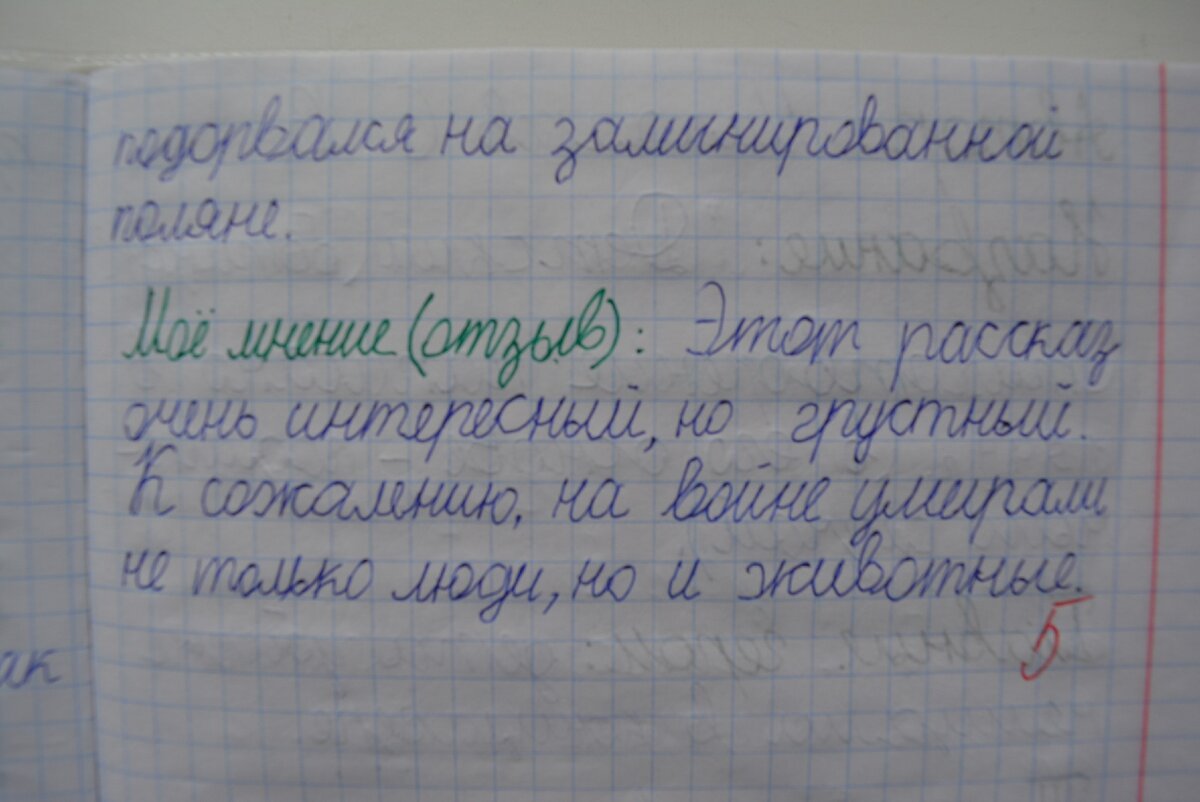 подорвался на заминированной
поляне.
Моё мнение (отзыв): Этот рассказ
очень интересный, но грустный.
К сожалению, на войне умирали
не только люди, но и животные.
5
ак